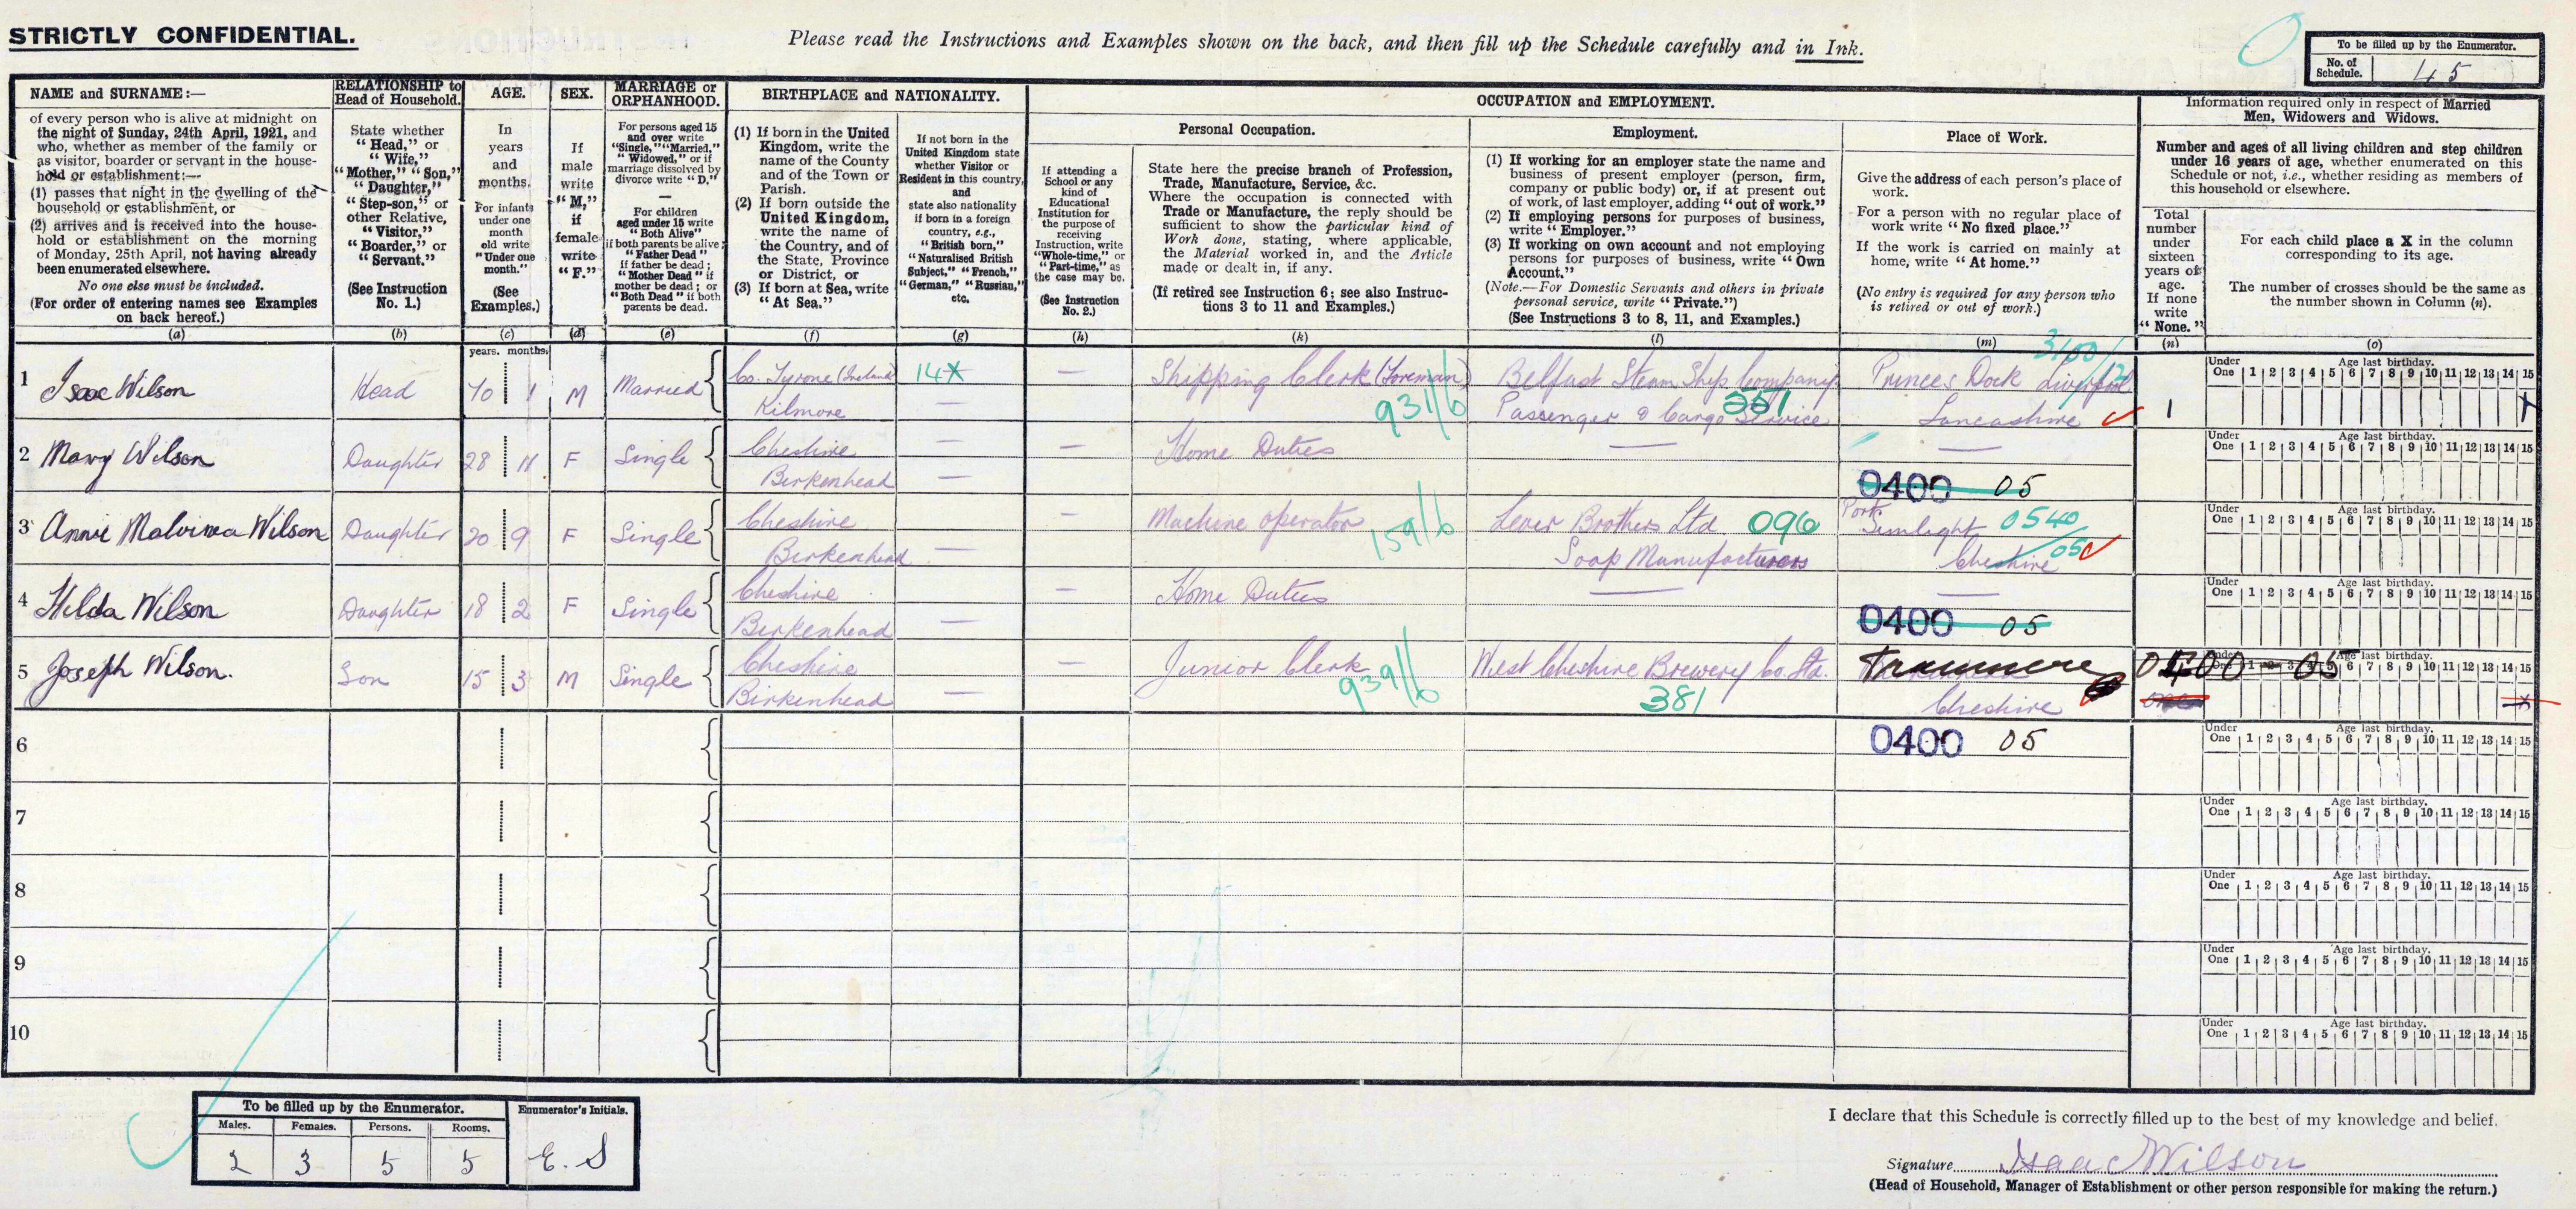 STRICTLY CONFIDENTIAL.
Please read the Instructions and Examples shown on the back, and then fill up the Schedule carefully and in Ink.
To be filled up by the Enumerator.
No. of Schedule. 45
NAME and SURNAME:—
of every person who is alive at midnight on
the night of Sunday, 24th April, 1921, and
who, whether as member of the family or
as visitor, boarder or servant in the house-
hold or establishment:—
(1) passes that night in the dwelling of the
household or establishment, or
(2) arrives and is received into the house-
hold or establishment on the morning
of Monday, 25th April, not having already
been enumerated elsewhere.
No one else must be included.
(For order of entering names see Examples
on back hereof.)
(a)
RELATIONSHIP to
Head of Household.
State whether
"Head," or
"Wife,"
"Mother," "Son,"
"Daughter,"
"Step-son," or
other Relative,
"Visitor,"
"Boarder," or
"Servant."
(See Instruction
No. 1.)
(b)
AGE.
In
years
and
months.
For infants
under one
month
old write
"Under one
month."
(See
Examples.)
(c)
SEX.
If
male
write
"M,"
if
female
write
"F."
(d)
MARRIAGE or
ORPHANHOOD.
For persons aged 15
and over write
"Single," "Married,"
"Widowed," or if
marriage dissolved by
divorce write "D."
—
For children
aged under 15 write
"Both Alive"
if both parents be alive;
"Father Dead"
if father be dead;
"Mother Dead" if
mother be dead; or
"Both Dead" if both
parents be dead.
(e)
BIRTHPLACE and NATIONALITY.
(1) If born in the United
Kingdom, write the
name of the County
and of the Town or
Parish.
(2) If born outside the
United Kingdom,
write the name of
the Country, and of
the State, Province
or District, or
(3) If born at Sea, write
"At Sea."
(f)
If not born in the
United Kingdom state
whether Visitor or
Resident in this country,
and
state also nationality
if born in a foreign
country, e.g.,
"British born,"
"Naturalised British
Subject," "French,"
"German," "Russian,"
etc.
(g)
OCCUPATION and EMPLOYMENT.
If attending a
School or any
kind of
Educational
Institution for
the purpose of
receiving
Instruction, write
"Whole-time," or
"Part-time," as
the case may be.
(See Instruction
No. 2.)
(h)
Personal Occupation.
State here the precise branch of Profession,
Trade, Manufacture, Service, &c.
Where the occupation is connected with
Trade or Manufacture, the reply should be
sufficient to show the particular kind of
Work done, stating, where applicable,
the Material worked in, and the Article
made or dealt in, if any.
(If retired see Instruction 6; see also Instruc-
tions 3 to 11 and Examples.)
(k)
Employment.
(1) If working for an employer state the name and
business of present employer (person, firm,
company or public body) or, if at present out
of work, of last employer, adding "out of work."
(2) If employing persons for purposes of business,
write "Employer."
(3) If working on own account and not employing
persons for purposes of business, write "Own
Account."
(Note.—For Domestic Servants and others in private
personal service, write "Private.")
(See Instructions 3 to 8, 11, and Examples.)
(l)
Place of Work.
Give the address of each person's place of
work.
For a person with no regular place of
work write "No fixed place."
If the work is carried on mainly at
home, write "At home."
(No entry is required for any person who
is retired or out of work.)
(m)
Information required only in respect of Married
Men, Widowers and Widows.
Number and ages of all living children and step children
under 16 years of age, whether enumerated on this
Schedule or not, i.e., whether residing as members of
this household or elsewhere.
Total
number
under
sixteen
years of
age.
If none
write
"None."
(n)
For each child place a X in the column
corresponding to its age.
The number of crosses should be the same as
the number shown in Column (n).
(o)
years. months.
1 Isaac Wilson Head 70 1 M Married Co. Tyrone (Ireland) 14X — Shipping Clerk (Foreman) Belfast Steam Ship Company Princes Dock Liverpool
Kilmore — 931/6 Passenger & Cargo Service Lancashire 1 X
Under One 1 2 3 4 5 6 7 8 9 10 11 12 13 14 15
Age last birthday.
2 Mary Wilson Daughter 28 11 F Single Cheshire — — Home Duties — —
Birkenhead — 0400 05
Under One 1 2 3 4 5 6 7 8 9 10 11 12 13 14 15
Age last birthday.
3 Annie Malvinea Wilson Daughter 20 9 F Single Cheshire — Machine operator 159/6 Lever Brothers Ltd 096 Port Sunlight 0540
Birkenhead — Soap Manufacturers Cheshire 05
Under One 1 2 3 4 5 6 7 8 9 10 11 12 13 14 15
Age last birthday.
4 Hilda Wilson Daughter 18 2 F Single Cheshire — Home Duties — —
Birkenhead — 0400 05
Under One 1 2 3 4 5 6 7 8 9 10 11 12 13 14 15
Age last birthday.
5 Joseph Wilson. Son 15 3 M Single Cheshire — Junior Clerk West Cheshire Brewery Co. Ltd. Tranmere
Birkenhead — 939/6 381 Cheshire
Under One 1 2 3 4 5 6 7 8 9 10 11 12 13 14 15
Age last birthday.
6 0400 05
Under One 1 2 3 4 5 6 7 8 9 10 11 12 13 14 15
Age last birthday.
7
Under One 1 2 3 4 5 6 7 8 9 10 11 12 13 14 15
Age last birthday.
8
Under One 1 2 3 4 5 6 7 8 9 10 11 12 13 14 15
Age last birthday.
9
Under One 1 2 3 4 5 6 7 8 9 10 11 12 13 14 15
Age last birthday.
10
Under One 1 2 3 4 5 6 7 8 9 10 11 12 13 14 15
Age last birthday.
To be filled up by the Enumerator.
Males. Females. Persons. Rooms.
2 3 5 5
Enumerator's Initials.
E. S
I declare that this Schedule is correctly filled up to the best of my knowledge and belief.
Signature Isaac Wilson
(Head of Household, Manager of Establishment or other person responsible for making the return.)